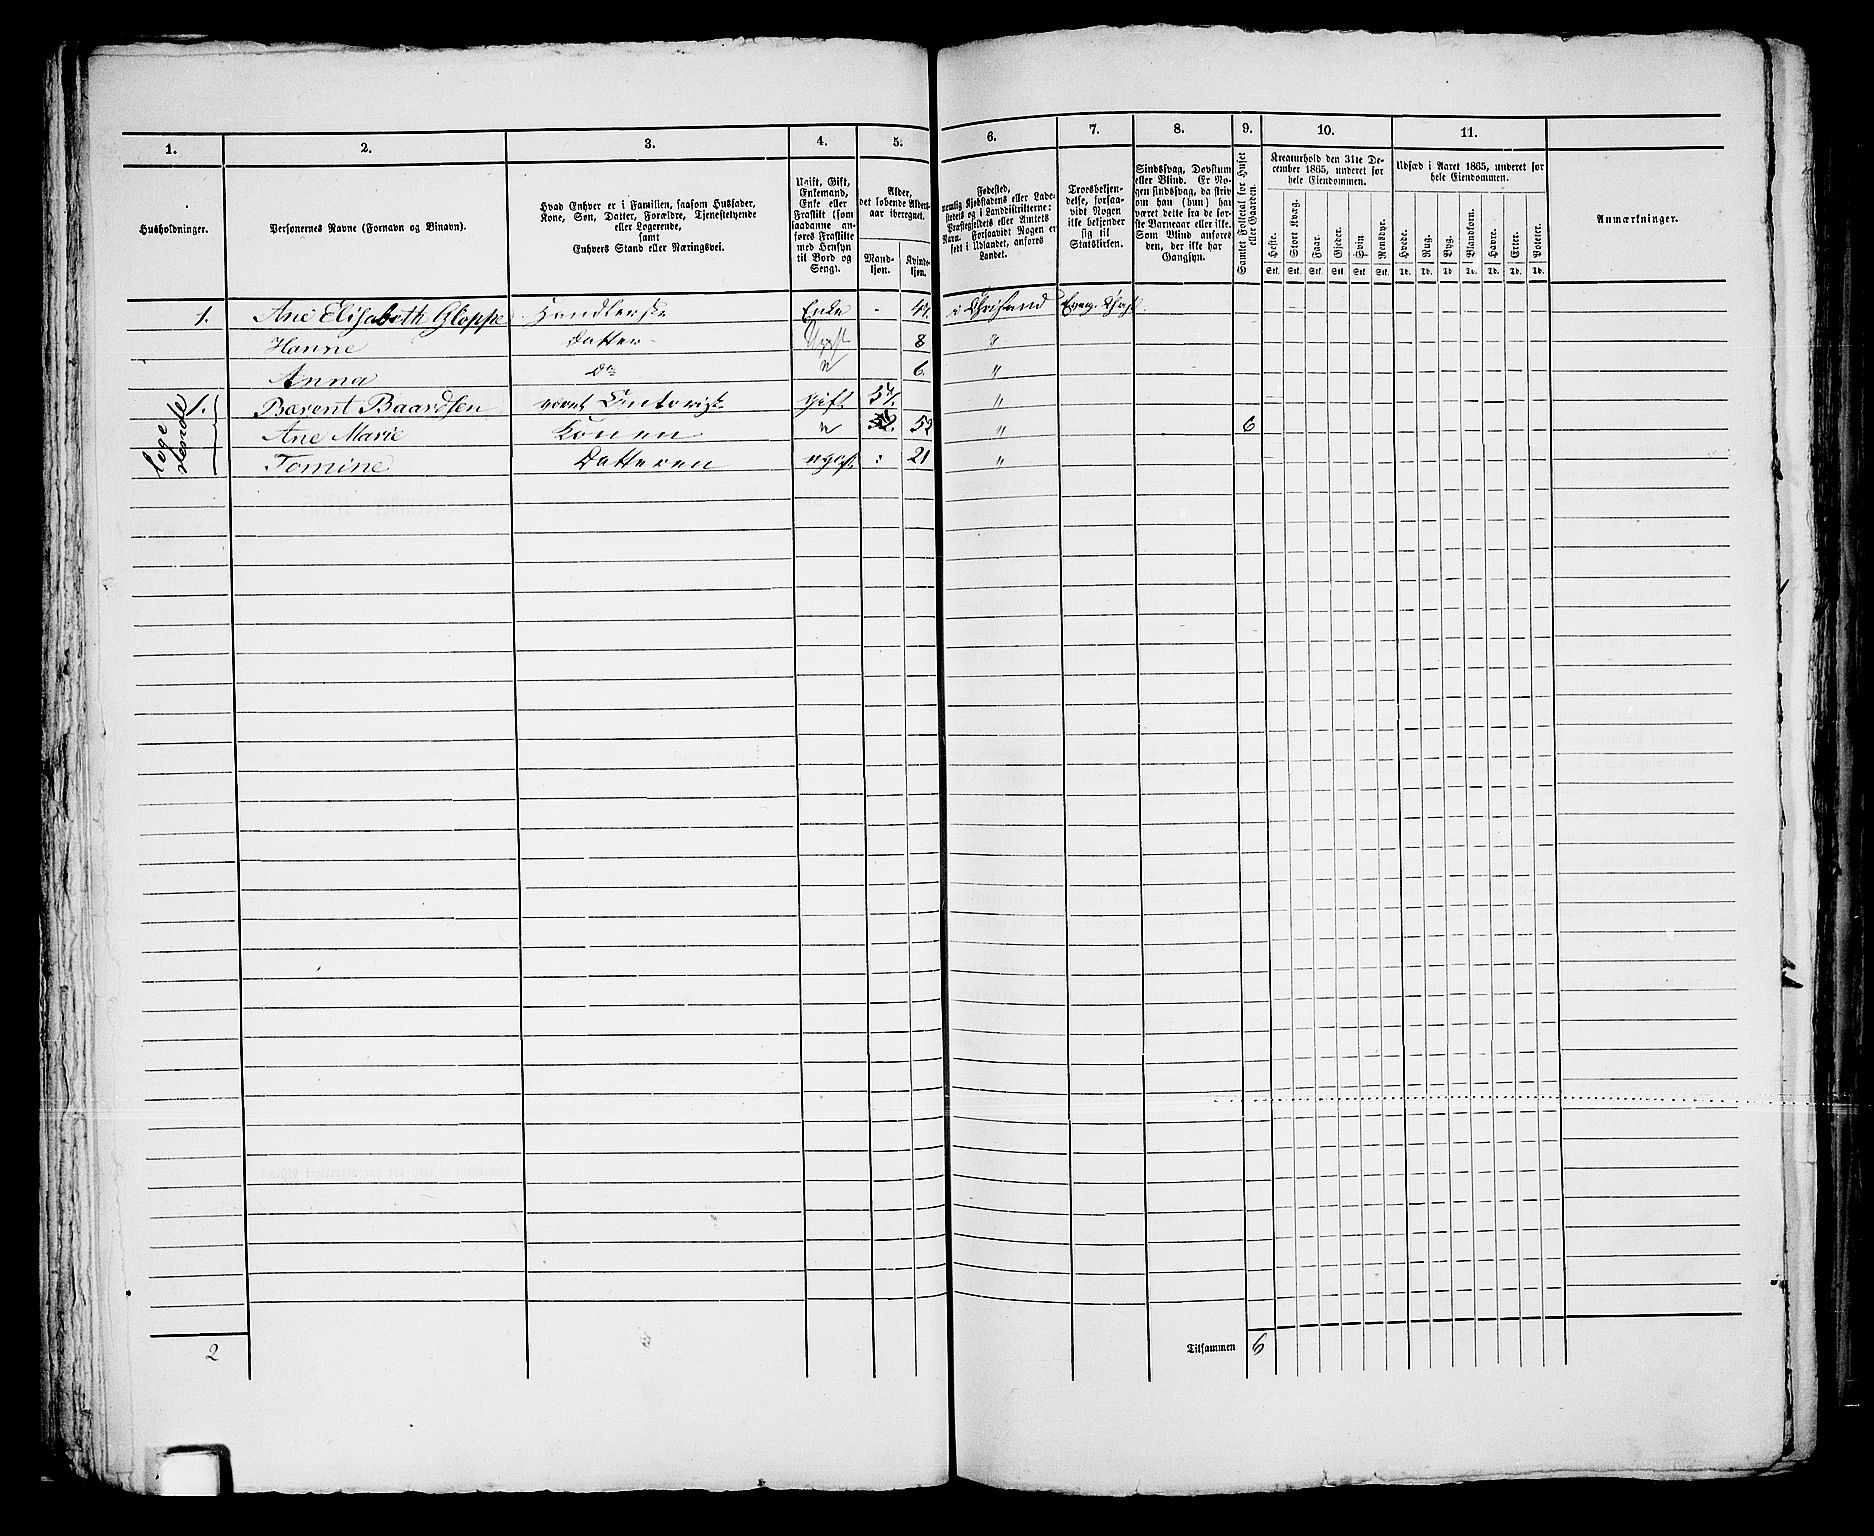 1. 2. 3. 4. 5. 6. 7. 8. 9. 10. 11.
Husholdninger.
Personernes Navne (Fornavn og Binavn).
Hvad Enhver er i Familien, saasom Husfader,
Kone, Søn, Datter, Forældre, Tjenestetyende
eller Logerende,
samt
Enhvers Stand eller Næringsvei.
Ugift, Gift,
Enkemand,
Enke eller
Fraskilt (som
saadanne an-
føres Fraskilte
med Hensyn
til Bord og
Seng).
Alder,
det løbende Alders-
aar iberegnet.
Mand-
kjøn.
Kvinde-
kjøn.
Fødested,
nemlig Kjøbstadens eller Lade-
stedets og i Landdistrikterne:
Præstegjeldets eller Amtets
Navn. Forsaavidt Nogen er
født i Udlandet, anføres
Landet.
Troesbekjen-
delse, forsaa-
vidt Nogen
ikke bekjender
sig til
Statskirken.
Sindssvag, Døvstum
eller Blind. Er No-
gen sindssvag, da skriv
om han (hun) har
været dette fra de før-
ste Barneaar eller ikke.
Som Blind anføres
den, der ikke har
Gangsyn.
Samlet Folketal for Huset
eller Gaarden.
Kreaturhold den 31te De-
cember 1865, underet for
hele Eiendommen.
Heste. Stort Kvæg. Faar. Gjeder. Svin. Rensdyr.
Stk. Stk. Stk. Stk. Stk. Stk.
Udsæd i Aaret 1865, underet for
hele Eiendommen.
Hvede. Rug. Byg. Blandkorn. Havre. Erter. Poteter.
Td. Td. Td. Td. Td. Td. Td.
Anmærkninger.
1. Ane Elisabeth Gloppe Handlerske Enke - 47. i Chrisand
Hanne Datter Ugift 8 "
Anna Do " 6. "
Logerende
1. Bærent Baardsen gift 54. "
Ane Marie Konen " 52 " 6
Tomine Datteren ugift 21 "
2 Tilsammen 6